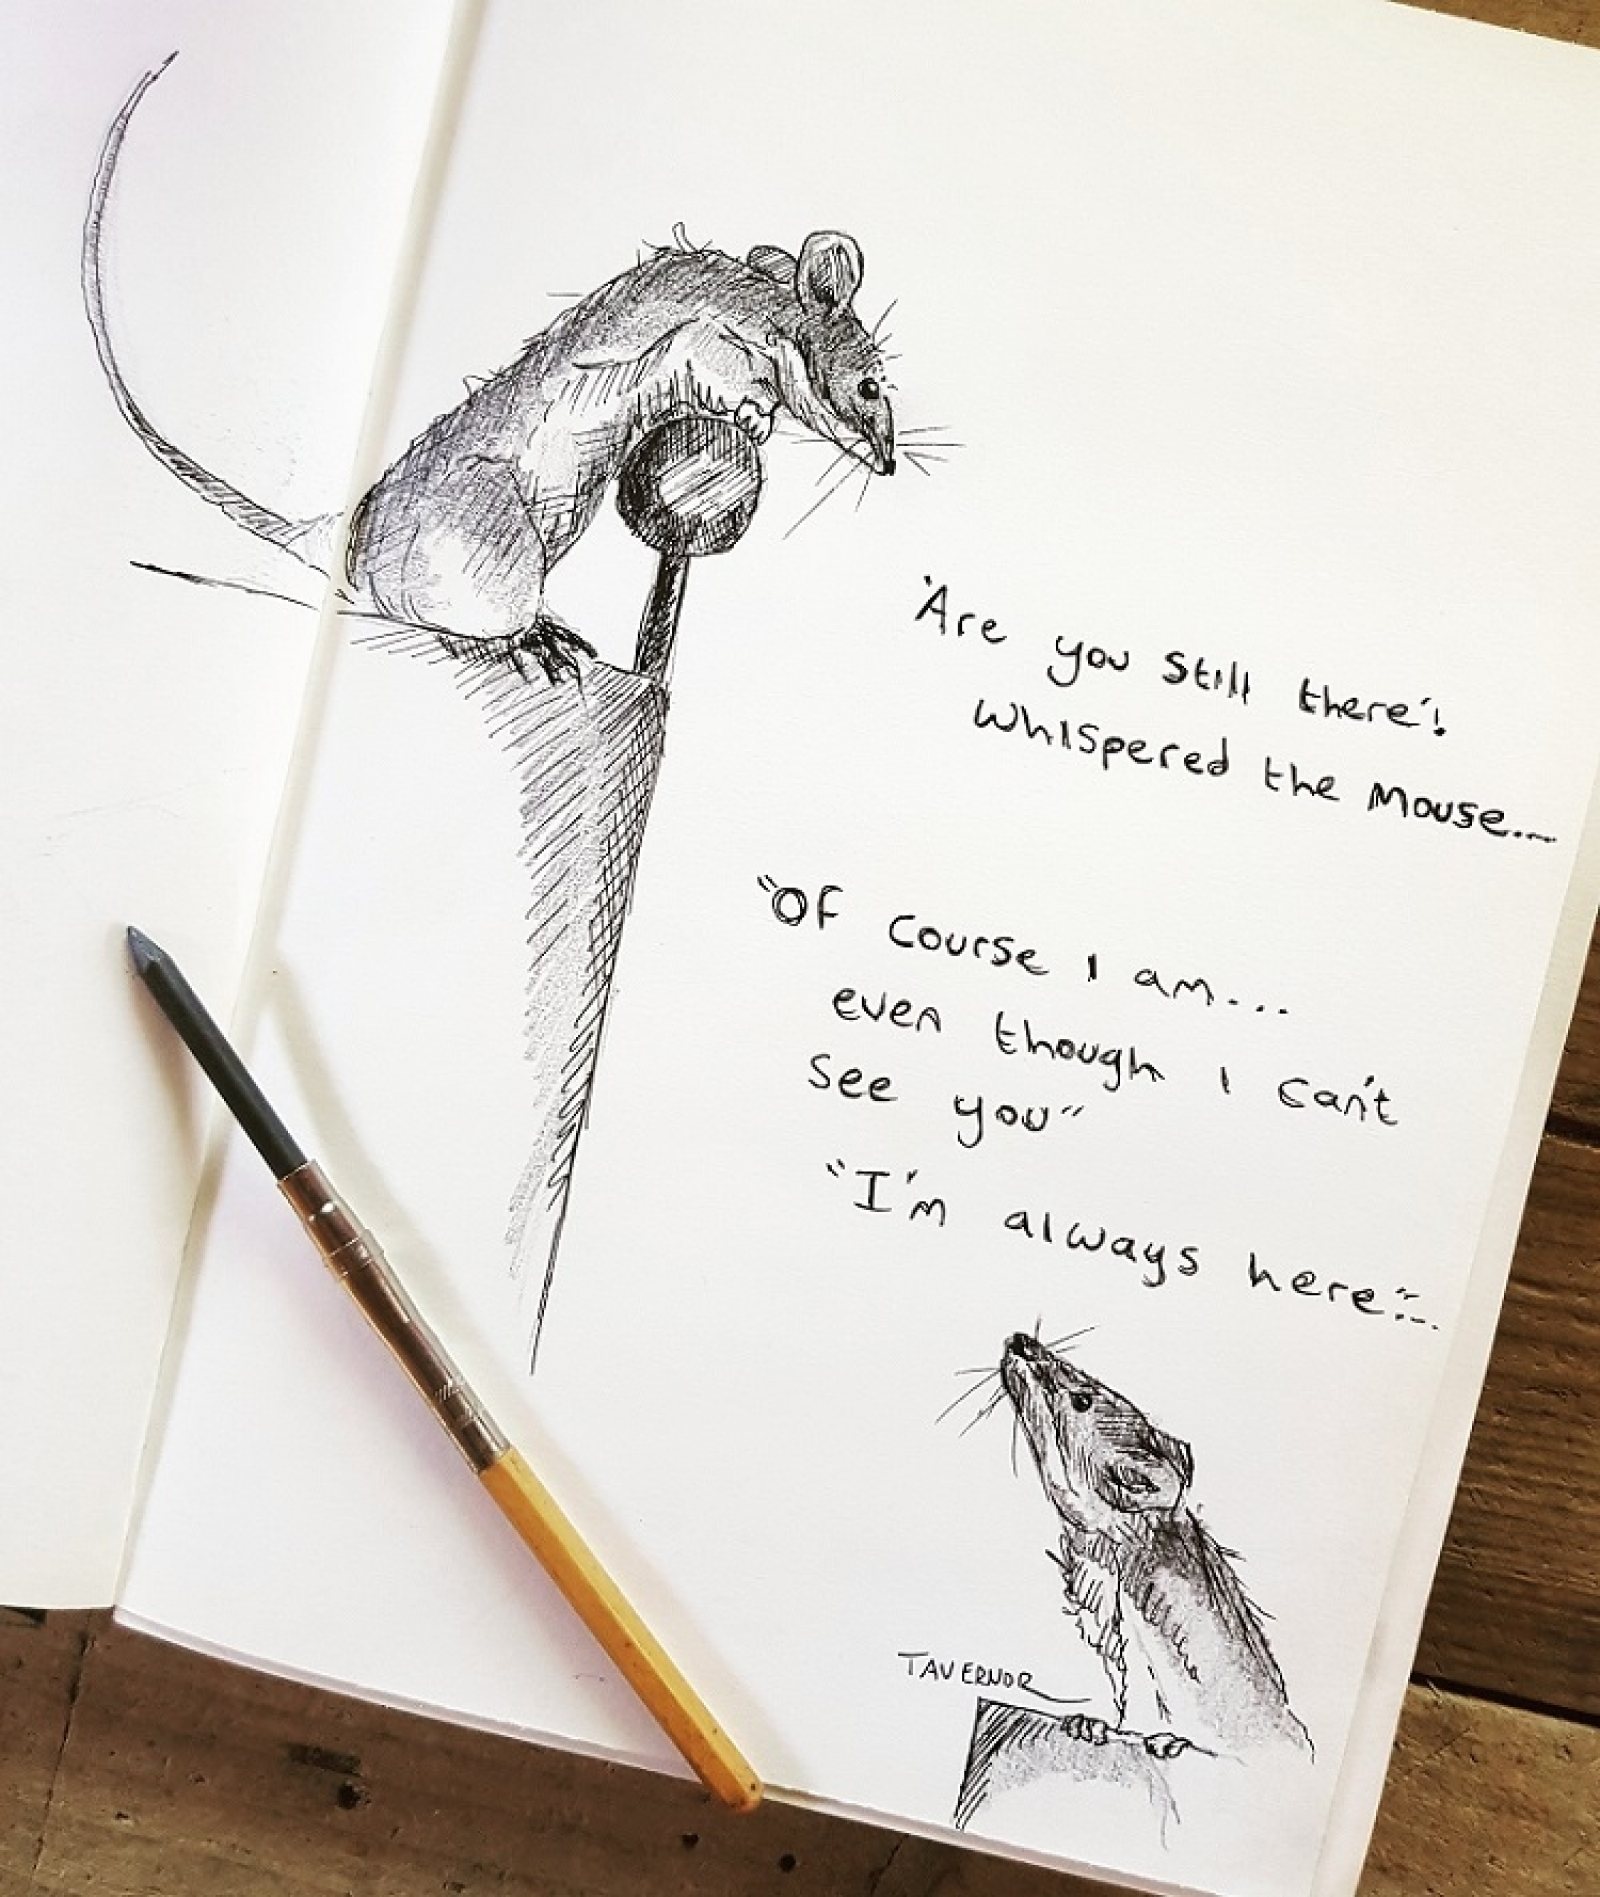 'Are you still there'!
whispered the Mouse....
"Of course I am...
even though I can't
see you"
"I'm always here"...
TAVERNOR